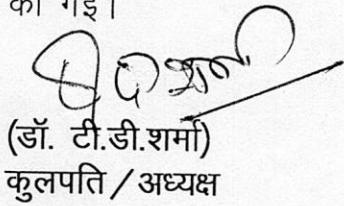 की गई।
(डॉ. टी.डी.शर्मा)
कुलपति / अध्यक्ष